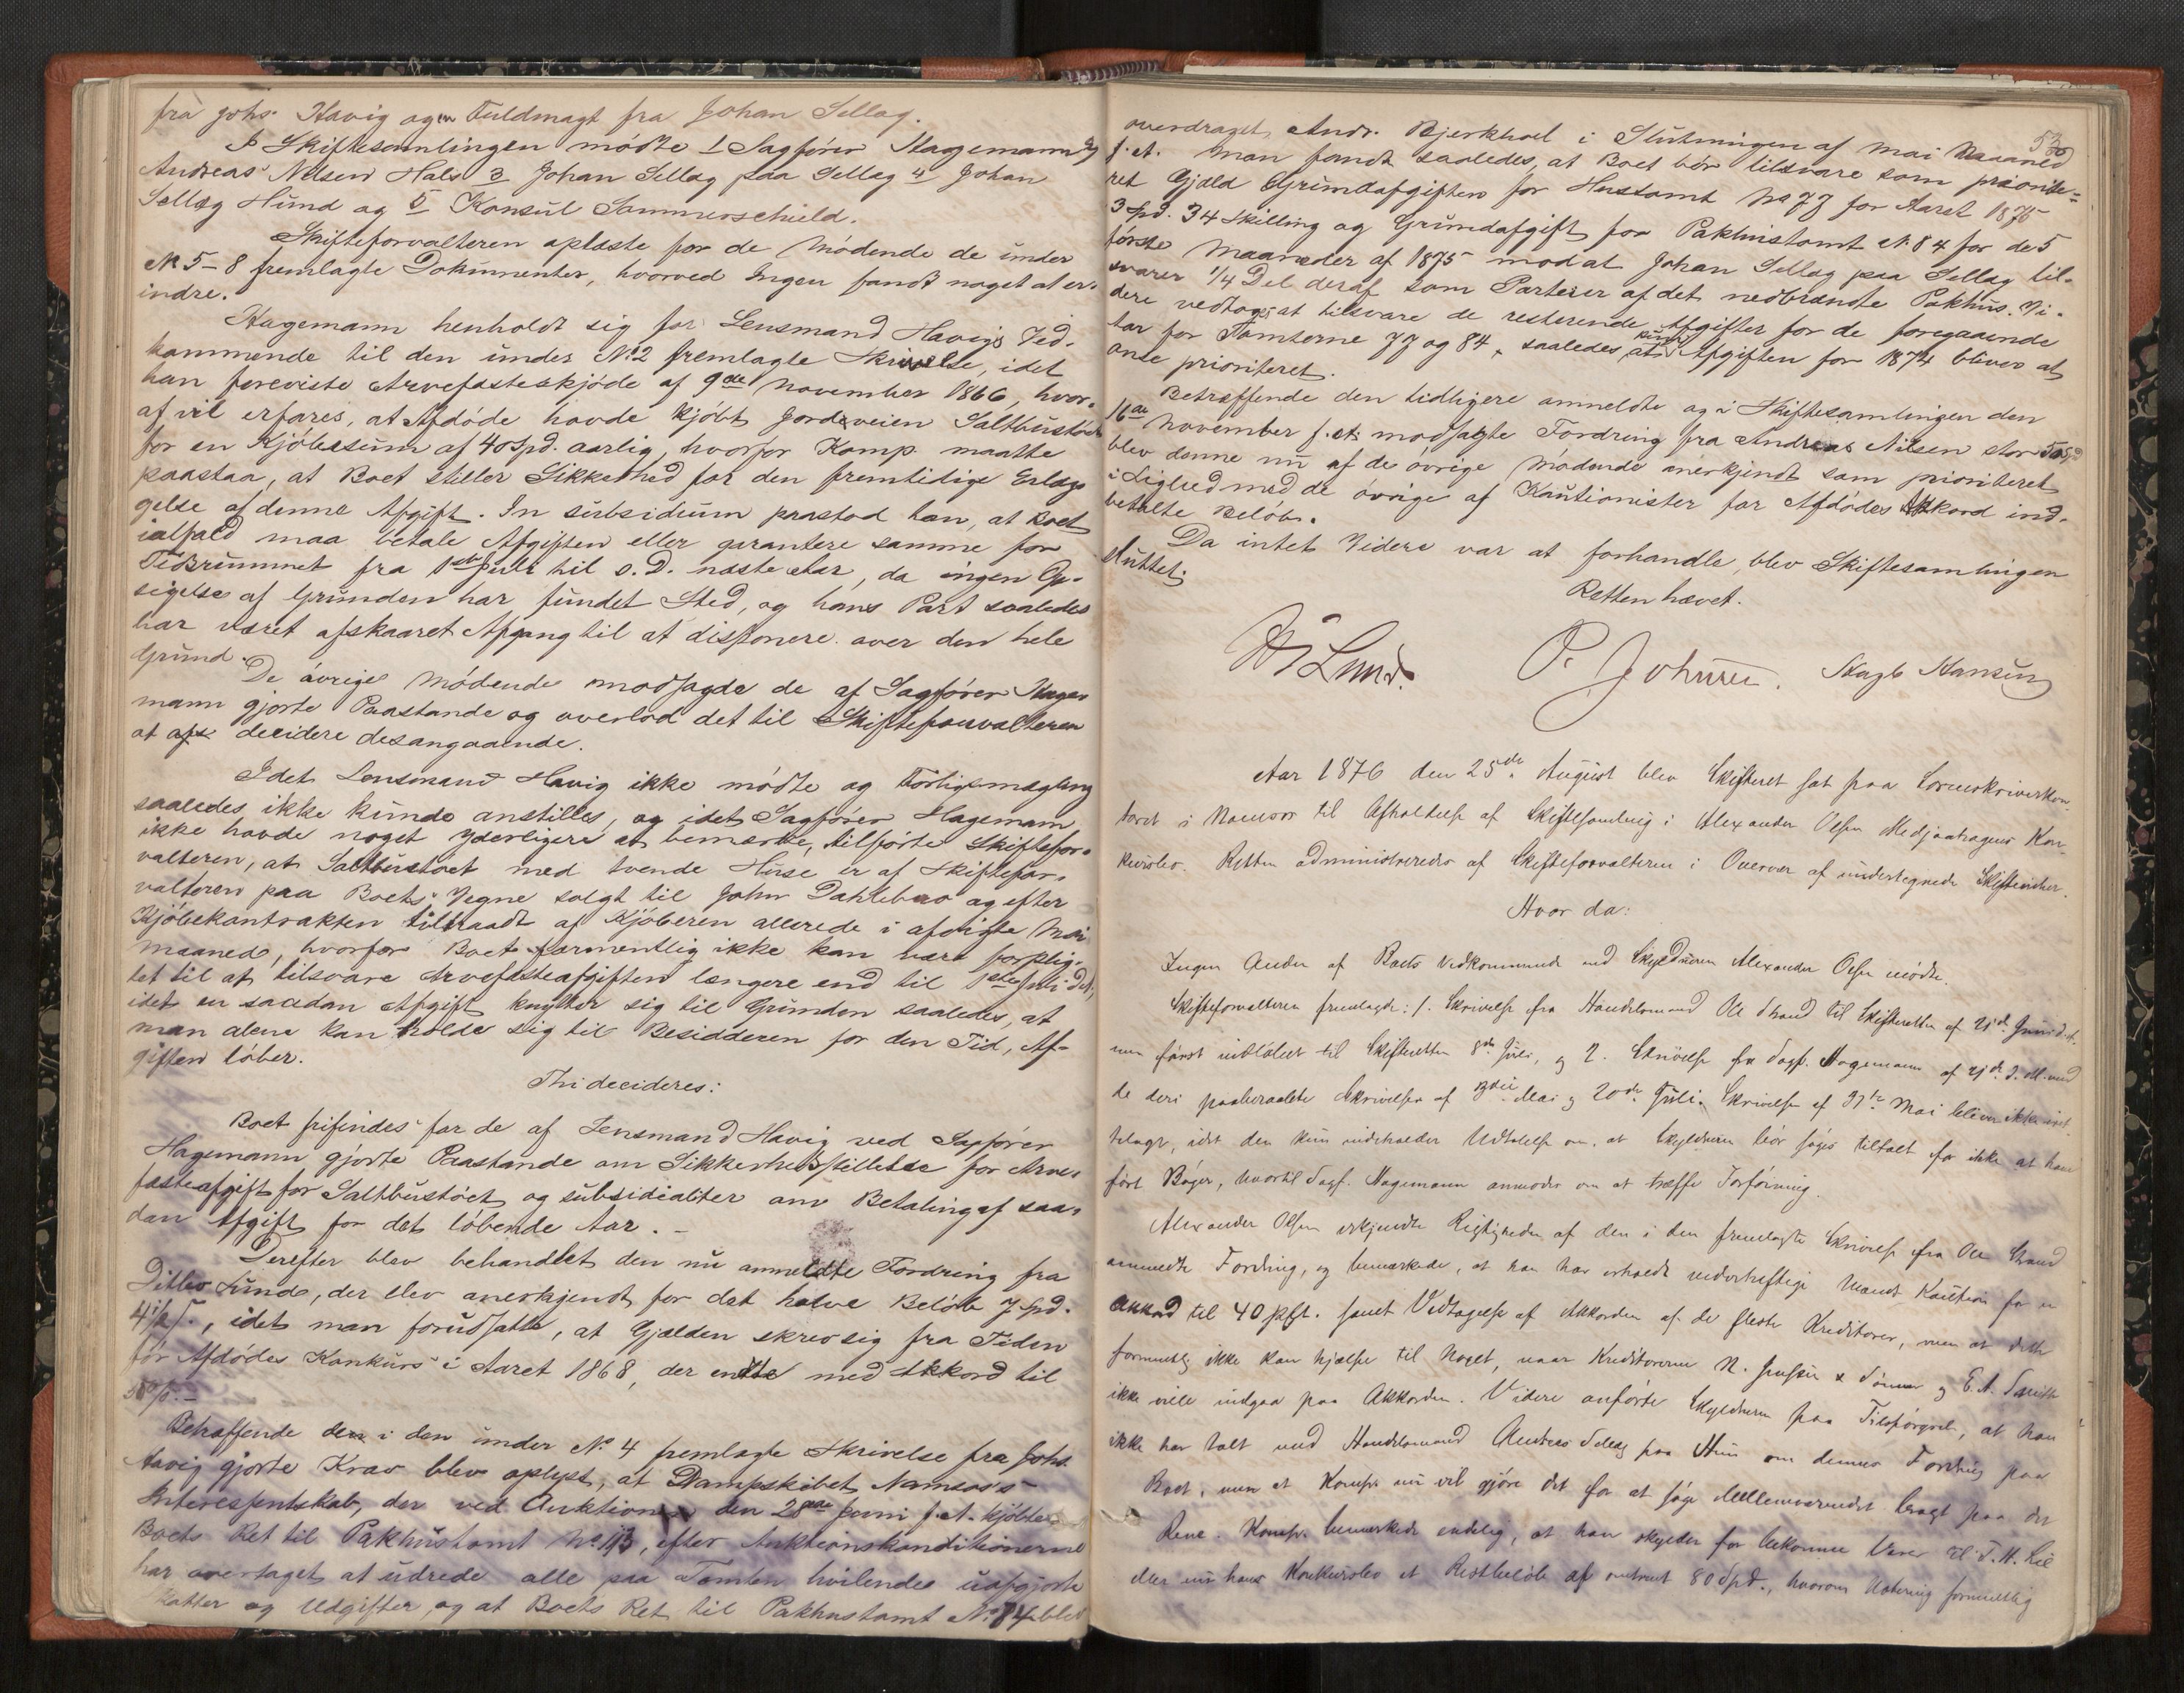 fra Johs. Havig og en Fuldmagt fra Johan Sellæg.
I Skiftesamlingen mødte 1 Sagfører Hagemann 2
Andreas Nilsen Hals 3 Johan Sellæg paa Sellæg 4 Johan
Sellæg Hund og 5 Konsul Sommerschield.
Skifteforvalteren oplæste for de Mødende de under
No 5-8 fremlagte Dokumenter, hvorved Ingen fandt noget at er-
indre.
Hagemann henholdt sig for Lensmand Havigs Ved-
kommende til den under No. 2 fremlagte Skrivelse, idet
han foreviste Arvefæsteskjøde af 9de November 1866, hvor-
af vil erfares, at Afdøde havde kjøbt Jordveien Saltbustøet
for en Kjøbesum af 40 Spd. aarlig, hvorfor Komp. maatte
paastaa, at Boet stiller Sikkerhed for den fremtidige Erlæg-
gelse af denne Afgift. In subsidium paastod han, at Boet
ialfald maa betale Afgiften eller garantere samme for
Tidsrummet fra 1ste Juli til s. D. næste Aar, da ingen Op-
sigelse af Grunden har fundet Sted, og hans Part saaledes
har været afskaaret Afgang til at disponere over den hele
Grund.
De øvrige Mødende modsagde de af Sagfører Hage-
mann gjorte Paastande og overlod det til Skifteforvalteren
at decidere desangaaende.
Idet Lensmand Havig ikke mødte og Forligsmægling
saaledes ikke kunde anstilles, og idet Sagfører Hagemann
ikke havde noget yderligere at bemærke, tilførte Skiftefor-
valteren, at Saltbustøet med tvende Huse er af Skiftefor-
valteren paa Boets Vegne solgt til John Dahlebro og efter
Kjøbekontrakten tiltraadt af Kjøberen allerede i afvigte Mai
Maaned, hvorfor Boet formentlig ikke kan være forplig-
tet til at tilsvare Arvefæsteafgiften længere end til 1ste Juli d.A.,
idet en saadan Afgift knytter sig til Grunden saaledes, at
man alene kan holde sig til Besidderen for den Tid, Af-
giften løber.
Thi decideres:
Boet frifindes for de af Lensmand Havig ved Sagfører
Hagemann gjorte Paastande om Sikkerhedsstillelse for Arve-
fæsteafgift for Saltbustøet og subsidialiter om Betaling af saa-
dan Afgift for det løbende Aar. -
Derefter blev behandlet den nu anmeldte Fordring fra
Ditlev Lund, der blev anerkjendt for det halve Beløb 7 Spd.
4½ s., idet man forudsatte, at Gjælden skrev sig fra Tiden
før Afdødes Konkurs i Aaret 1868, der endte med Akkord til
50%. -
Betræffende den i den under No. 4 fremlagte Skrivelse fra Johs.
Havig gjorte Krav blev oplyst, at Dampskibet Namsos's
Interessentskab, der ved Auktion den 28de Juni f. A. kjøbte
Boets Ret til Pakhustomt No. 113, efter Auktionskonditionerne
har overtaget at udrede alle paa Tomten hvilende uafgjorte
Skatter og Udgifter, og at Boets Ret til Pakhustomt No. 84 blev
53
overdraget Andr. Bjerkhoel i Slutningen af Mai Maaned
f. A. Man fandt saaledes, at Boet bør tilsvare som priorite-
ret Gjæld Grundafgiften for Hustomt No 77 for Aaret 1875
3 Spd. 34 Skilling og Grundafgift for Pakhustomt N. 84 for de 5
første Maaneder af 1875 mod at Johan Sellæg paa Sellæg til-
svarer 1/4 Del deraf som Parteier af det nedbrændte Pakhus. Vi-
dere vedtoges at tilsvare de resterende Afgifter for de foregaaende
Aar for Tomterne 77 og 84, saaledes at kun Afgiften for 1874 bliver at
anse prioriteret.
Betræffende den tidligere anmeldte og i Skiftesamlingen den
16de November f. A. modsagte Fordring fra Andreas Nilsen stor 50 Spd
blev denne nu af de øvrige Mødende anerkjendt som prioriteret
i Lighed med de øvrige af Kautionister for Afdødes Akkord ind-
betalte Beløb.
Da intet Videre var at forhandle, blev Skiftesamlingen
sluttet.
Retten hævet.
Lund. P. Johnsen. Hansen
Aar 1876 den 25de August blev Skifteret sat paa Sorenskriverkon-
toret i Namsos til Afholdelse af Skiftesamling i Alexander Olsen Medjaahagens Kon-
kursbo. Retten administreredes af Skifteforvalteren i Overvær af undertegnede Skiftevidner.
Hvor da:
Ingen Anden af Boets Vedkommende end Skyldneren Alexander Olsen mødte.
Skifteforvalteren fremlagde: 1. Skrivelse fra Handelsmand Ole Strand til Skifteretten af 21de Juni d. A.
men først indløbet til Skifteretten 8de Juli, og 2. Skrivelse fra Sagf. Hagemann af 21de d. M. med
de deri paaberaabte Skrivelser af Mai og 20de Juli. Skrivelse af 31te Mai bliver ikke ind-
tages, idet den kun indeholder Udtalelse om, at Skyldneren bør søges tiltalt for ikke at have
ført Bøger, hvortil Sagf. Hagemann anmodes om at træffe Forføining.
Alexander Olsen erkjendte Rigtigheden af den i den fremlagte Skrivelse fra Ole Strand
anmeldte Fordring, og bemærkede, at han har erholdt vederheftige Mænds Kaution for en
Akkord til 40 pCt. samt Vedtagelse af Akkorden af de fleste Kreditorer, men at dette
formentlig ikke kan hjælpe til Noget, naar Kreditorerne N. Jenssen & Sønner og E. A. Smith
ikke ville indgaa paa Akkorden. Videre anførte Skyldneren paa Tilspørgsel, at han
ikke har talt med Handelsmand Andreas Sellæg paa Hun om dennes Fordring paa
Boet, men at Komp. nu vil gjøre det for at søge Mellemværendet bragt paa det
Rene. Komp. bemærkede endelig, at han skylder for bekomne Varer til T. M. Lie
eller nu hans Konkursbo et Restbeløb af omtrent 80 Spd., hvorom formentlig